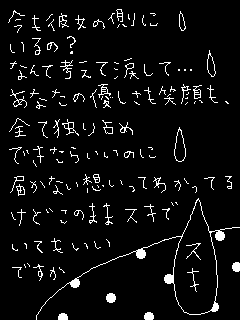 今も彼女の側に
いるの?
なんて考えて涙して…
あなたの優しさも笑顔も、
全て独り占め
できたらいいのに
届かない想いってわかってる
けどこのままスキで
いてもいい
ですか
スキ